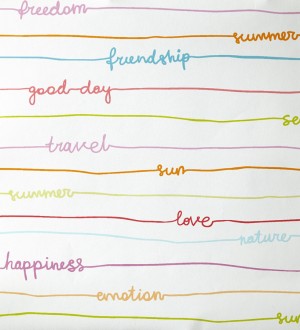 freedom
summer
friendship
good day
se
travel
sun
summer
love
nature
happiness
emotion
sun